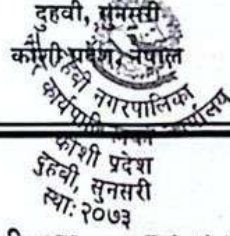 दुहवी, सुनसरी
कोशी प्रदेश, नेपाल
दुहवी नगरपालिका
कार्यपालिका कार्यालय
कोशी प्रदेश
दुहवी, सुनसरी
स्था: २०७३